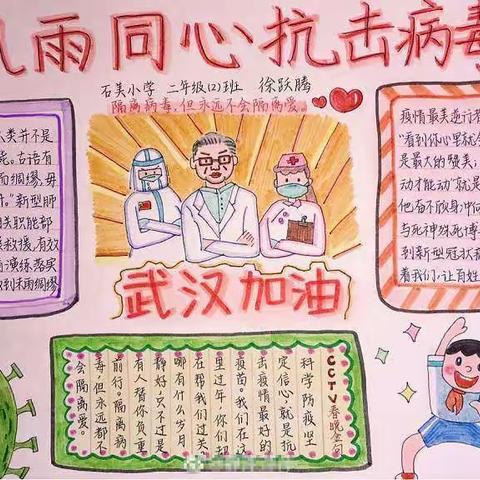 风雨同心抗击病毒
石美小学 二年级(2)班 徐跃腾
隔离病毒,但永远不会隔离爱。
人类并不是
能。古语有
雨绸缪,毋
井。"新型肺
相关职能部
援救援、有效
演练落实
到未雨绸缪
疫情最美逆行者
"看到你心里就会
是最大的赞美;
动才能动"就是
他奋不顾身,冲向
与死神殊死博
到新型冠状病
着我们,让百姓
武汉加油
CCTV春晚金句
科学防疫坚
定信心就是抗
击疫情最好的
疫苗。我们在这
里过年,你们却
在帮我们过关。
哪有什么岁月
静好,只不过是
有人替你负重
前行。隔离病
毒,但永远都不
会隔离爱。